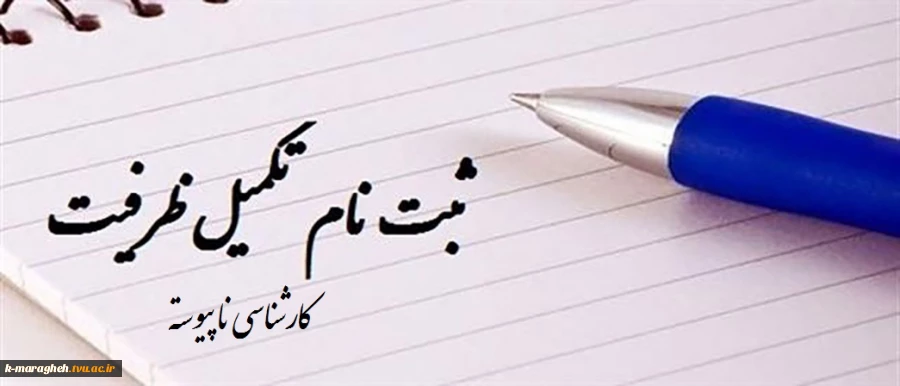 ثبت نام تکمیل ظرفیت
کارشناسی ناپیوسته
k-maragheh.tvu.ac.ir